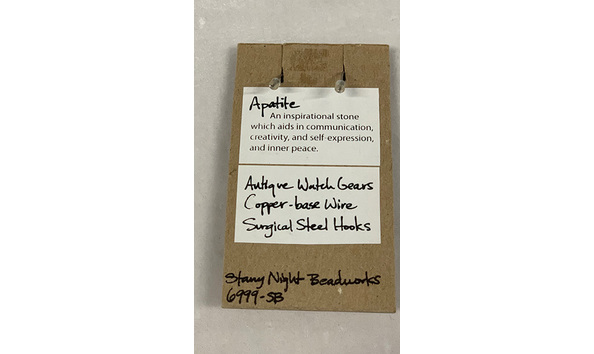 Apatite
An inspirational stone
which aids in communication,
creativity, and self-expression,
and inner peace.
Antique Watch Gears
Copper-base Wire
Surgical Steel Hooks
Starry Night Beadworks
6999-SB